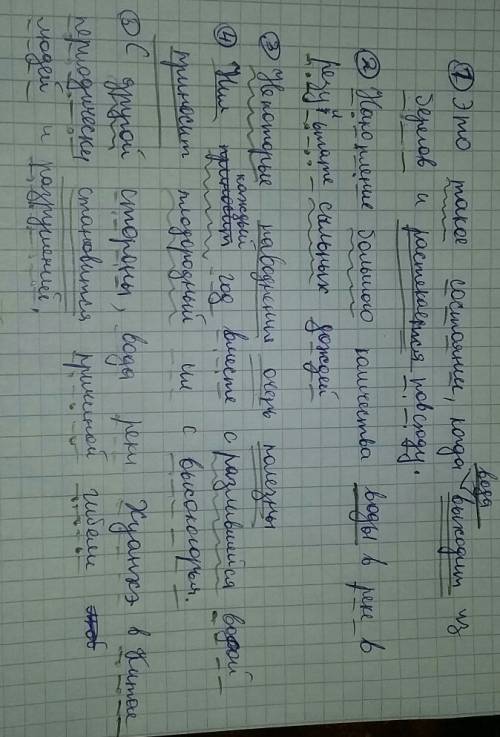 ① Это такое состояние, когда вода выходит из
берегов и растекается повсюду.
② Накопление большого количества воды в реке в
результате сильных дождей
③ Некоторые наводнения очень полезны
④ Нил каждый год вместе с разлившейся водой
приносит плодородный ил с высокогорья.
⑤ С другой стороны, воды реки Хуанхэ в Китае
периодически становится причиной гибели
людей и разрушений,